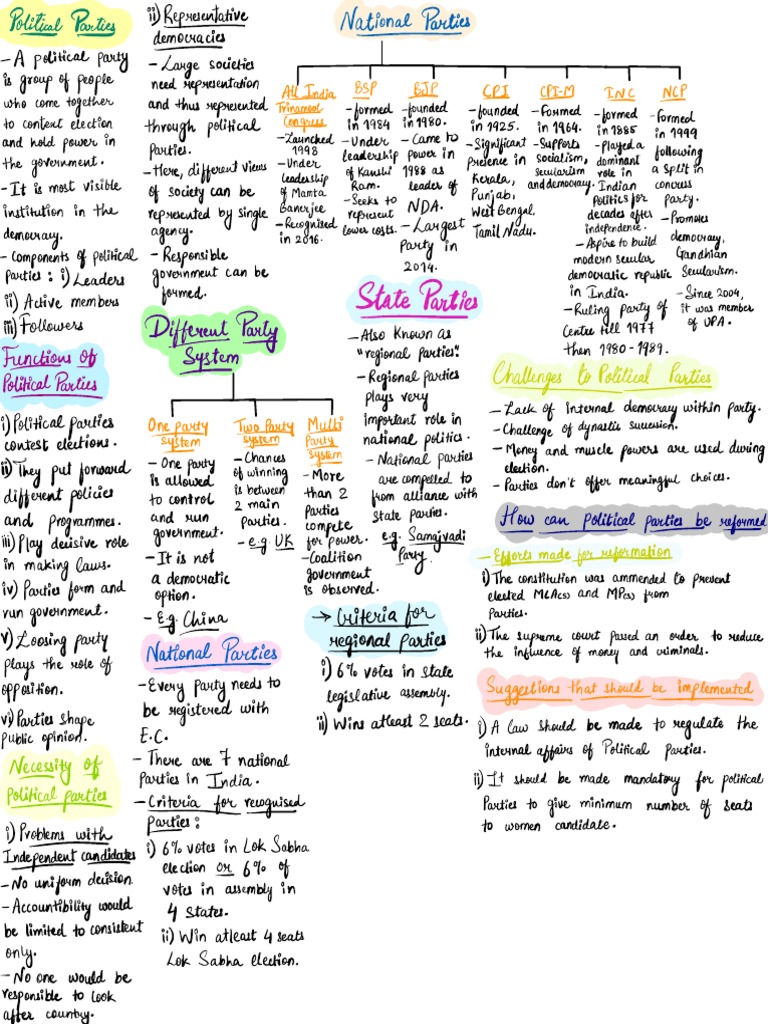 Political Parties
- A political party
is group of people
who come together
to context election
and hold power in
the government.
- It is most visible
institution in the
democracy.
- Components of political
parties : i) Leaders
ii) Active members
iii) Followers
Functions of
Political Parties
i) Political parties
contest elections.
ii) They put forward
different policies
and programmes.
iii) Play decisive role
in making laws.
iv) Parties form and
run government.
v) Loosing party
plays the role of
opposition.
vi) Parties shape
public opinion.
Necessity of
Political parties
i) Problems with
Independent candidates
- No uniform decision
- Accountibility would
be limited to consistent
only.
- No one would be
responsible to look
after country.
ii) Representative
democracies
- Large societies
need representation
and thus represented
through political
Parties.
- Here, different views
of society can be
represented by single
agency.
- Responsible
government can be
formed.
Different Party
System
One party
system
- One party
is allowed
to control
and run
government.
- It is not
a democratic
option.
- E.g. China
Two Party
system
- Chances
of winning
is between
2 main
parties.
- e.g. UK
Multi
Party
system
- More
than 2
Parties
compete
for power.
- Coalition
government
is observed.
National Parties
- Every party needs to
be registered with
E.C.
- There are 7 national
Parties in India.
- Criteria for recognised
Parties :
i) 6% votes in Lok Sabha
election or 6% of
votes in assembly in
4 States.
ii) Win atleast 4 seats
Lok Sabha election.
National Parties
All India
Trinamool
Congress
- Launched
1998
- Under
leadership
of Mamta
Banerjee
- Recognised
in 2016.
BSP
- formed
in 1984
- Under
leadership
of Kanshi
Ram.
- Seeks to
represent
lower costs.
BJP
- founded
in 1980.
- Came to
power in
1988 as
leader of
NDA.
- Largest
Party in
2014.
CPI
- founded
in 1925.
- Significant
presence in
Kerala,
Punjab,
West Bengal,
Tamil Nadu.
CPI-M
- Formed
in 1964.
- Supports
socialism,
secularism
and democracy.
INC
- formed
in 1885
- Played a
dominant
role in
Indian
Politics for
decades after
independence.
- Aspire to build
modern secular
democratic republic
in India.
- Ruling party of
Centre till 1977
then 1980-1989.
NCP
- Formed
in 1999
following
a split in
concress
party.
- Promotes
democracy,
Gandhian
Secularism.
- Since 2004,
it was member
of UPA.
State Parties
- Also Known as
"regional parties".
- Regional parties
plays very
important role in
national politics.
- National parties
are compelled to
from alliance with
state parties.
e.g. Samajvadi
Party.
→ Criteria for
regional parties
i) 6% votes in state
legislative assembly.
ii) Wins atleast 2 seats.
Challenges to Political Parties
- Lack of Internal democracy within party.
- Challenge of dynastic succession.
- Money and muscle powers are used during
election.
- Parties don't offer meaningful choices.
How can political parties be reformed
- Efforts made for reformation
i) The constitution was ammended to prevent
elected MLA(s) and MP(s) from
Parties.
ii) The supreme court passed an order to reduce
the influence of money and criminals.
Suggestions that should be implemented
i) A law should be made to regulate the
internal affairs of Political Parties.
ii) It should be made mandatory for political
Parties to give minimum number of seats
to women candidate.